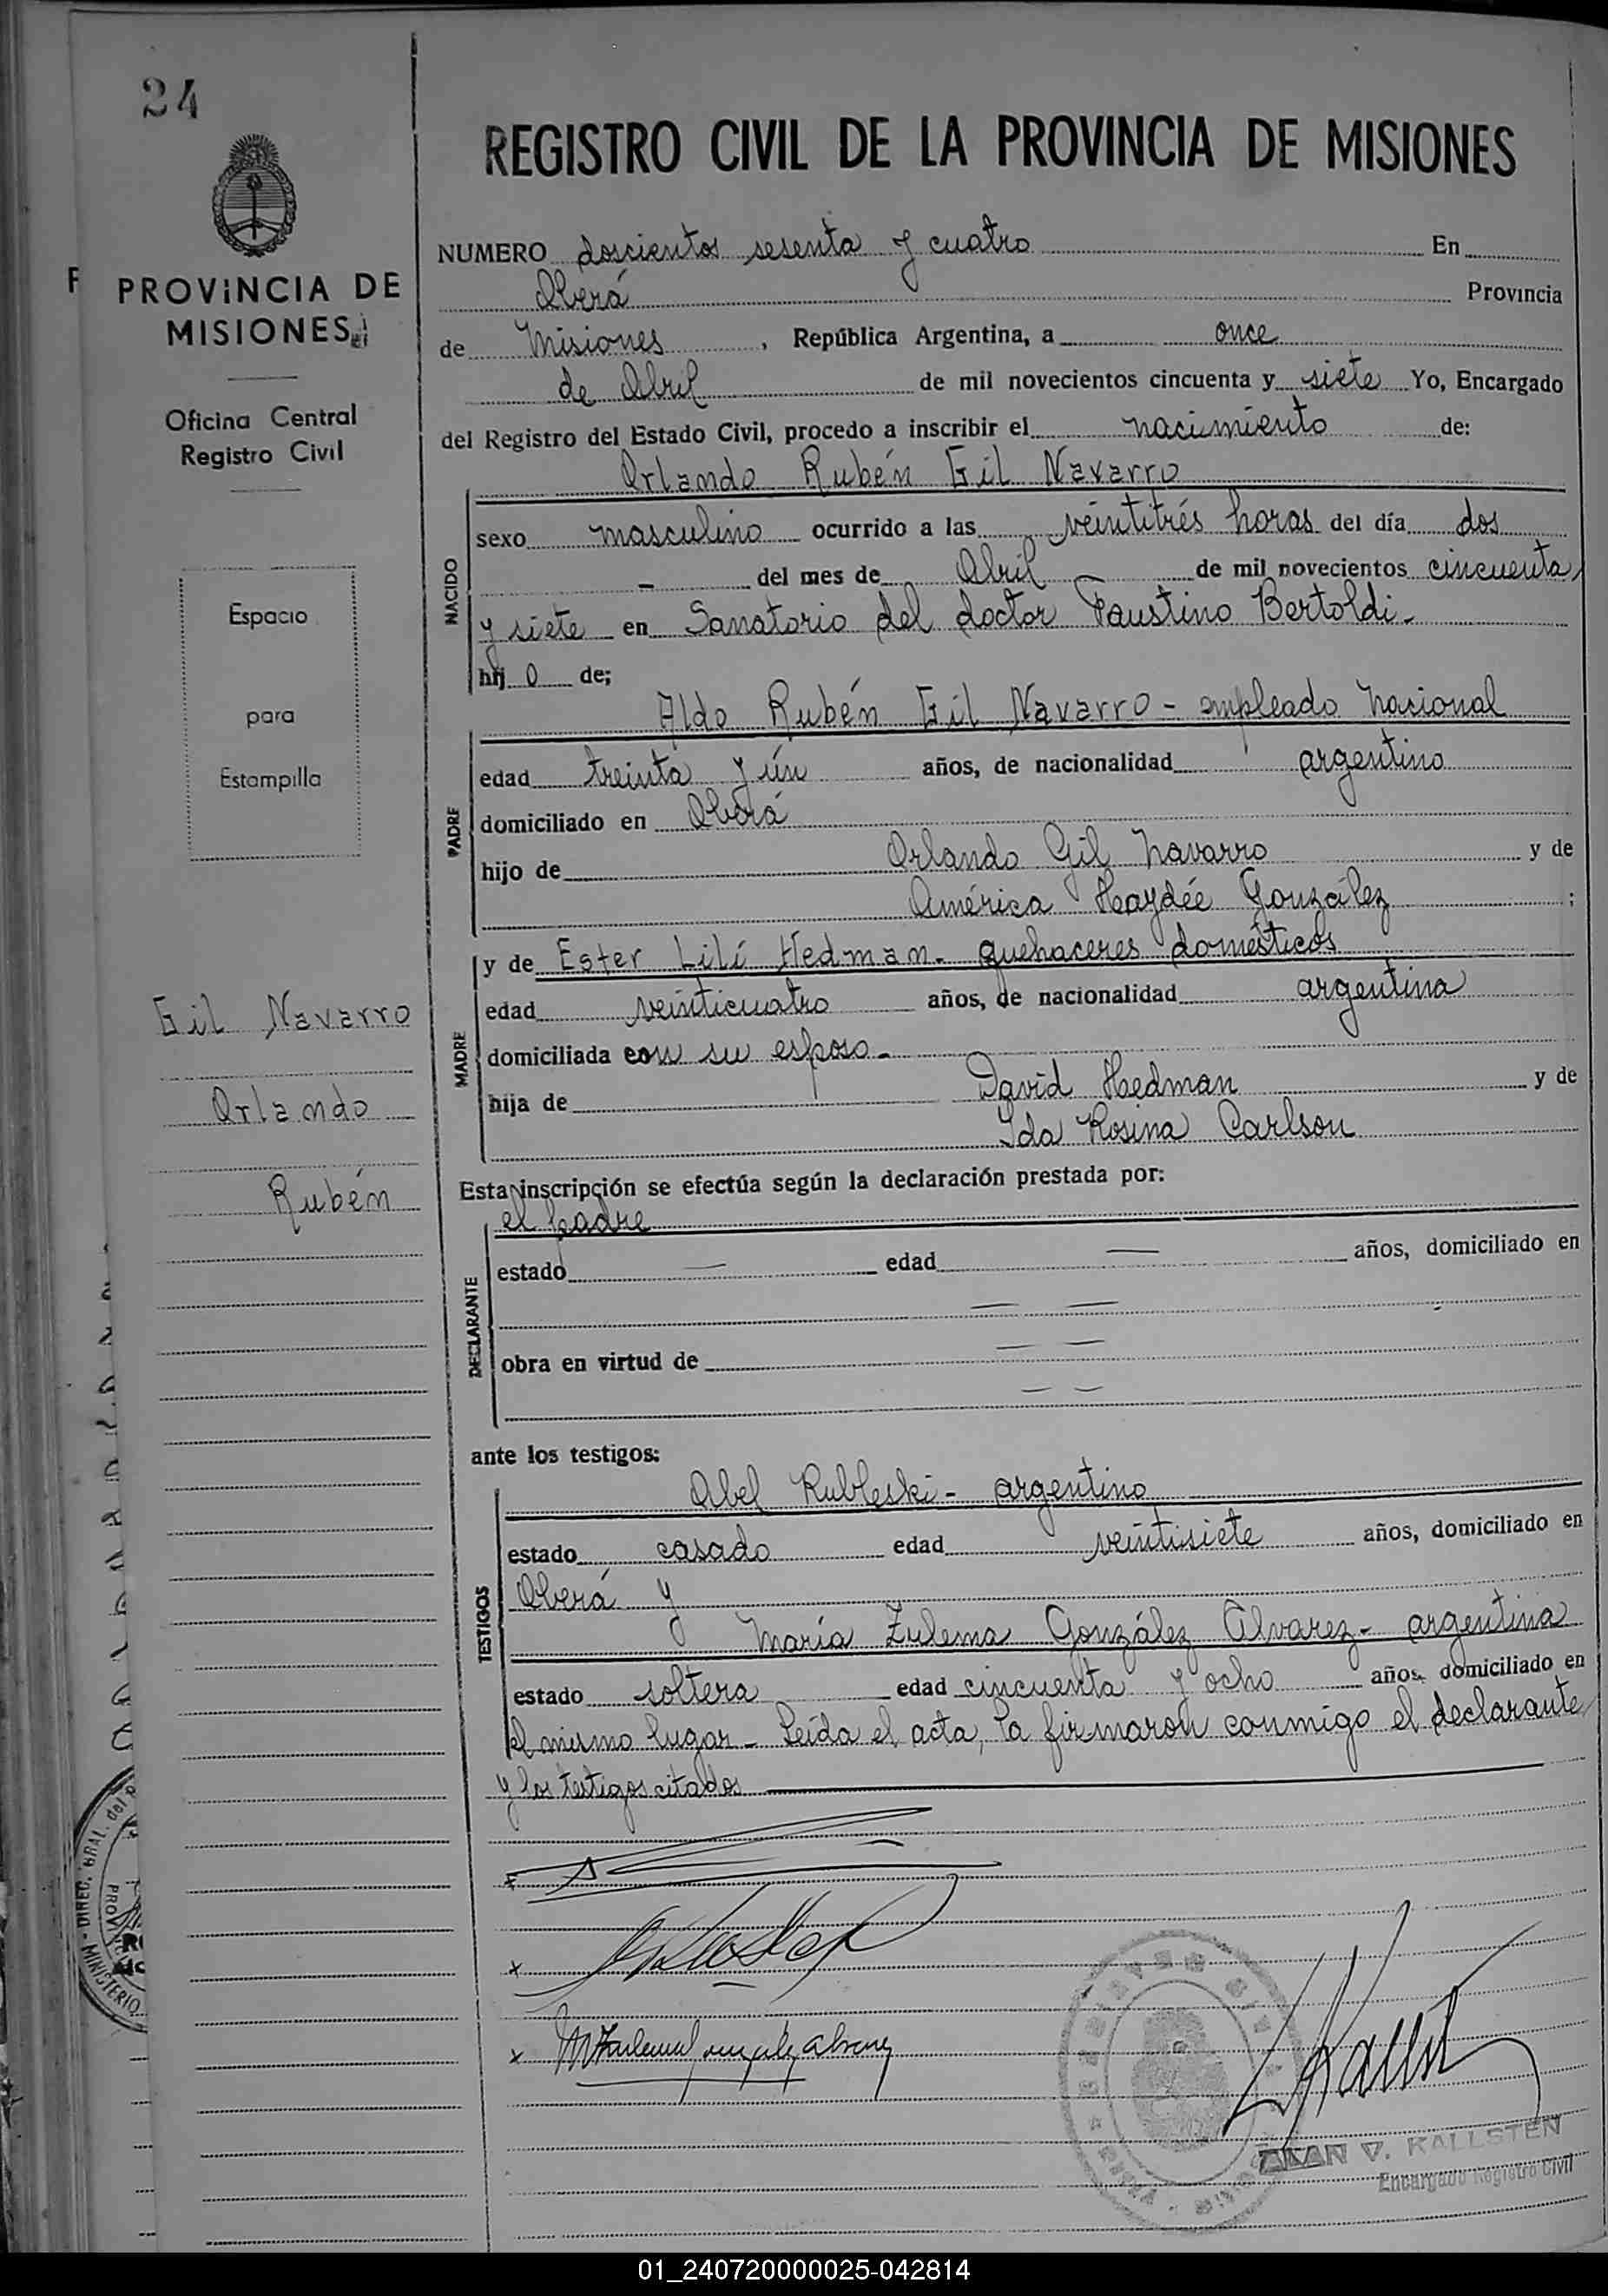 24
REGISTRO CIVIL DE LA PROVINCIA DE MISIONES
PROVINCIA DE
MISIONES
Oficina Central
Registro Civil
Espacio
para
Estampilla
Gil Navarro
Orlando
Rubén
NUMERO doscientos sesenta y cuatro En
Oberá Provincia
de Misiones, República Argentina, a once
de Abril de mil novecientos cincuenta y siete Yo, Encargado
del Registro del Estado Civil, procedo a inscribir el nacimiento de:
Orlando Rubén Gil Navarro
NACIDO
sexo masculino ocurrido a las veintitrés horas del día dos
– del mes de Abril de mil novecientos cincuenta
y siete en Sanatorio del doctor Faustino Bertoldi.
hij o de;
Aldo Rubén Gil Navarro - empleado nacional
PADRE
edad treinta y ún años, de nacionalidad argentino
domiciliado en Oberá
hijo de Orlando Gil Navarro y de
América Haydée González ;
y de Ester Lilí Hedman. quehaceres domésticos
MADRE
edad veinticuatro años, de nacionalidad argentina
domiciliada con su esposo -
hija de David Hedman y de
Ida Rosina Carlson
Esta inscripción se efectúa según la declaración prestada por:
el padre
DECLARANTE
estado — edad — años, domiciliado en
— —
obra en virtud de — —
— —
ante los testigos:
Abel Rubleski - argentino
TESTIGOS
estado casado edad veintisiete años, domiciliado en
Oberá y
María Zulema González Alvarez - argentina
estado soltera edad cincuenta y ocho años, domiciliado en
el mismo lugar - Leída el acta, la firmaron conmigo el declarante
y los testigos citados
ALAN V. KALLSTEN
Encargado Registro Civil
01_240720000025-042814